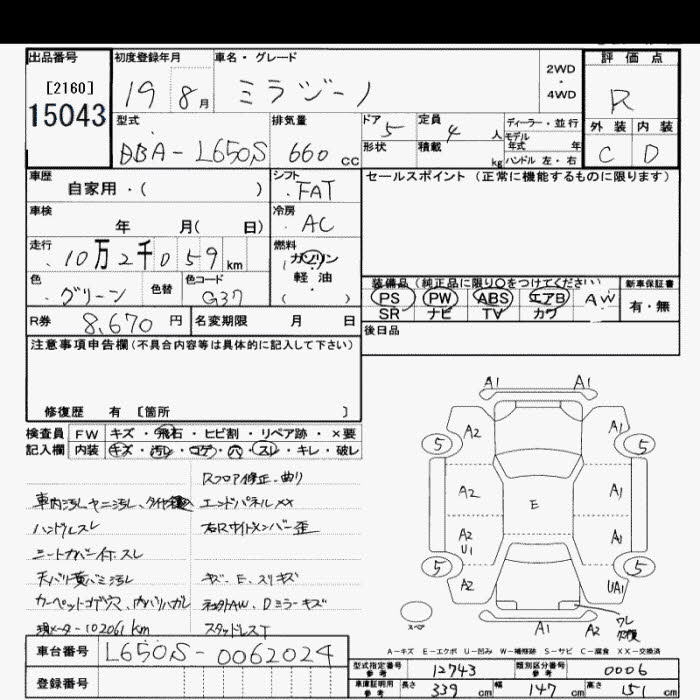 出品番号
[2160]
15043
初度登録年月
19 8月
車名・グレード
ミラジーノ
2WD
・
4WD
評価点
R
外装 内装
C D
型式
DBA-L650S
排気量
660 cc
ドア 5
定員 4人
ディーラー・並行
モデル年式 年
形状
積載 kg
ハンドル 左・右
車歴
自家用・( )
シフト
FAT
セールスポイント (正常に機能するものに限ります)
車検
年 月( 日)
冷房
AC
走行
10万2千059km
燃料
ガソリン
軽油
( )
色
グリーン
色替
色コード
G37
装備品(純正品に限り○をつけてください)
PS PW ABS エアB AW
SR ナビ TV カワ
新車保証書
有・無
R券 8,670円
名変期限 月 日
後日品
注意事項申告欄(不具合内容等は具体的に記入して下さい)
修復歴 有 [箇所 ]
検査員記入欄
FW キズ・飛石・ヒビ割・リペア跡・×要
内装 キズ・汚レ・コゲ・穴・スレ・キレ・破レ
Rフロア修正、曲り
車内汚レヤニ汚レ、
エンドパネルXX
ハンドルスレ
右Rサイドメンバー歪
シートカバー付、スレ
天バリ黄バミ汚レ
キズ、E、スリキズ
カーペットコゲ穴、内バリハガレ
社外AW、Dミラーキズ
現メーター102061km
スタッドレスT
A1 A1
A2 A1
5 5
A2 E A1
A2 U1 A1
5 5
A2 UA1
スペア
A1 A2
ワレ
A-キズ E-エクボ U-凹み W-補修跡 S-サビ C-腐食 XX-交換済
車台番号
L650S-0062024
登録番号
型式指定番号 参考 12743
類別区分番号 参考 0006
車庫証明用 参考 長さ 339cm 幅 147cm 高さ 151cm